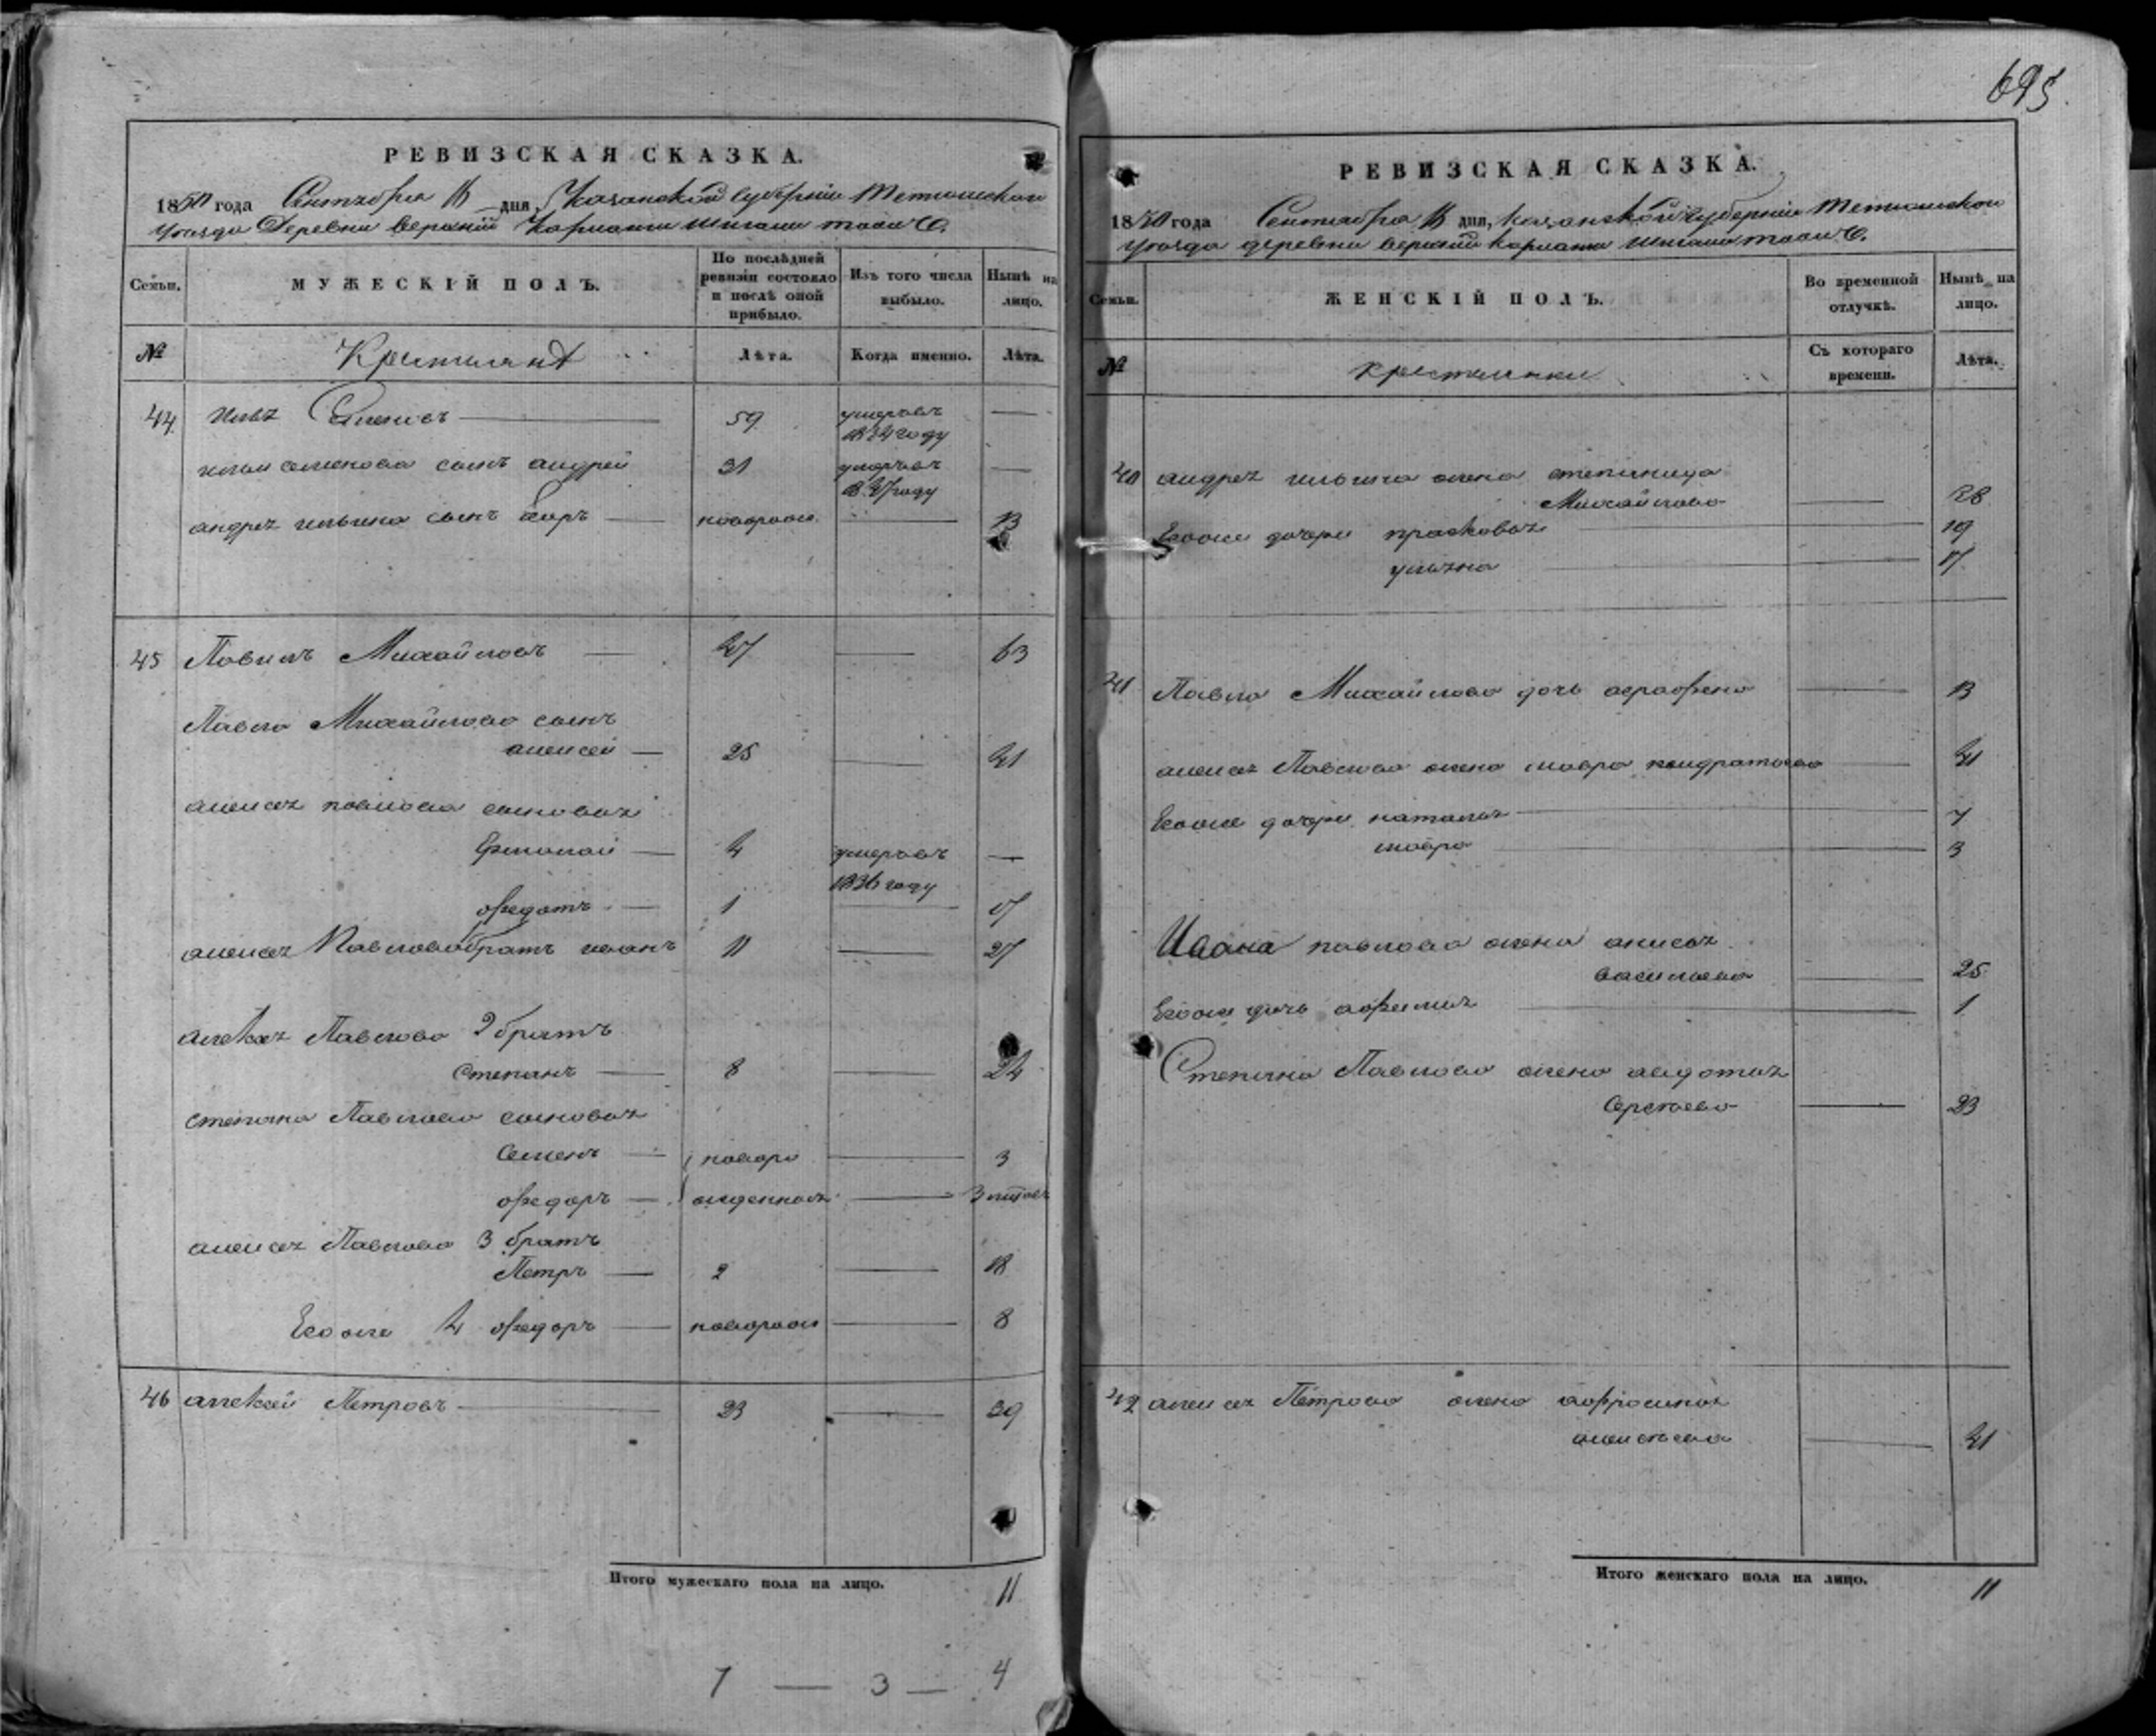 695
РЕВИЗСКАЯ СКАЗКА.
1850 года Сентября дня, Казанской Губернии Тетюшскаго
Уезда Деревни верхній
Семьи.
МУЖЕСКІЙ ПОЛЪ.
По послѣдней ревизіи состояло и послѣ оной прибыло.
Изъ того числа выбыло.
Нынѣ на лицо.
№
Лѣта.
Когда именно.
Лѣта.
44 Семеновъ 59 умеръ въ
1834 году
семенова сынъ андрей 31 умеръ въ
году
андрея ильина сынъ новорож.
45 Павилъ Михайловъ 47 63
Павла Михайлова сынъ
алексей 25 41
алексея павлова сыновья
4 умеръ въ
1836 году
ѳедотъ 1 17
алексея Павлова братъ иванъ 11 27
алексея Павлова 2 братъ
Степанъ 8 24
степана Павлова сыновья
Семенъ новоро 3
ѳедоръ жденныя
алексея Павлова 3 братъ
Петръ 2 18
Егоже 4 ѳедоръ новорож 8
46 алексей Петровъ 23 39
Итого мужескаго пола на лицо. 11
7 — 3 — 4
РЕВИЗСКАЯ СКАЗКА.
1850 года Сентября дня, казанской губерніи Тетюшскаго
Уезда деревни верхній
Семьи.
ЖЕНСКІЙ ПОЛЪ.
Во временной отлучкѣ.
Нынѣ на лицо.
№
крестьянки
Съ котораго времени.
Лѣта.
40 андрея ильина жена степанида
Михайлова
Егоже дочери прасковья 19
ульяна 17
41 Павла Михайлова дочь аграфена
алексея Павлова жена мавра кондратьева 41
Егоже дочери наталья 7
мавра 3
Ивана павлова жена анисья
васильева 25
Егоже дочь 1
Степана Павлова жена авдотья
Сергеева 23
42 алексея Петрова жена афросинья
алексеева 41
Итого женскаго пола на лицо. 11